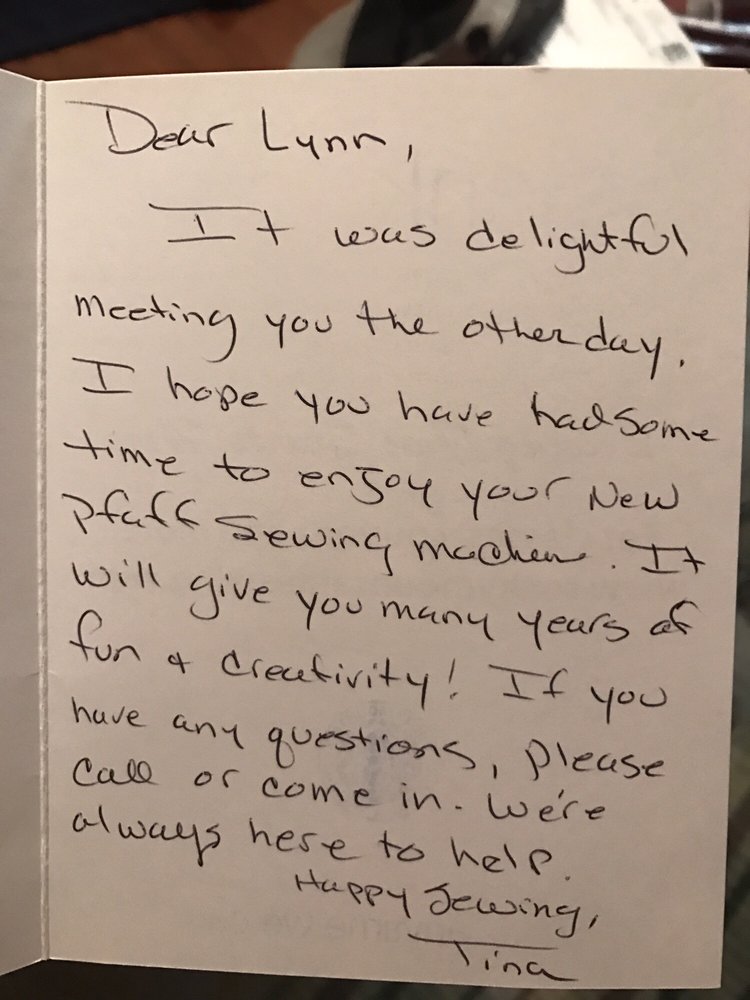 Dear Lynn,
It was delightful
meeting you the other day.
I hope you have had some
time to enjoy your New
Pfaff Sewing machine. It
will give you many years of
fun & creativity! If you
have any questions, please
call or come in. We're
always here to help.
Happy Sewing,
Tina